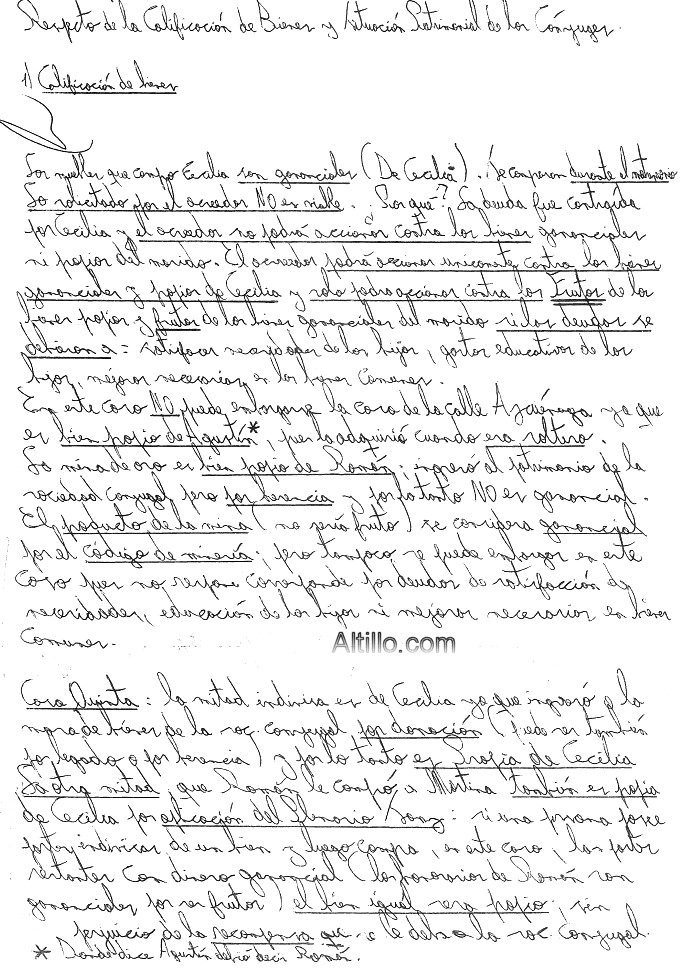 Respecto de la Calificación de Bienes y Situación Patrimonial de los Cónyuges.
1) Calificación de bienes
Los muebles que compo Cecilia son gananciales (De Cecilia). Se compraron durante el matrimonio
Lo solicitado por el acreedor NO es viable. ¿Por qué? La deuda fue contraída
por Cecilia y el acreedor no podrá accionar contra los bienes gananciales
ni propios del marido. El acreedor podrá accionar unicamente contra los bienes
gananciales y propios de Cecilia y solo podra accionar contra los Frutos de los
bienes propios y frutos de los bienes gananciales del marido si las deudas se
debieron a: satisfacer necesidades de los hijos, gastos educativos de los
hijos, mejoras necesarias en los bienes Comunes.
En este caso NO puede embargarse la casa de la calle Azcuénaga ya que
es bien propio de Agustín*, pues la adquirió cuando era soltero.
La mina de oro es bien propio de Román: ingresó al patrimonio de la
sociedad conyugal pero por herencia y por lo tanto NO es ganancial.
El producto de la mina (no sería fruto) se considera ganancial
por el Código de minería; pero tampoco se puede embargar en este
caso pues no responde por deudas de satisfacción de
necesidades, educación de los hijos ni mejoras necesarias en bienes
Comunes.
Altillo.com
Casa Quinta: la mitad indivisa es de Cecilia ya que ingresó a la
masa de bienes de la soc. conyugal por donación (puede ser también
por legado o por herencia) y por lo tanto es Propia de Cecilia
La otra mitad que Román le compó a Martina también es propia
de Cecilia por aplicación del Plenario Sanz: si una persona posee
partes indivisas de un bien y luego compra, en este caso, las partes
restantes con dinero ganancial (los honorarios de Román son
gananciales por ser frutos) el bien igual será propio; sin
perjuicio de la recompensa que se le deba a la soc. conyugal.
* Donde dice Agustín debió decir Román.